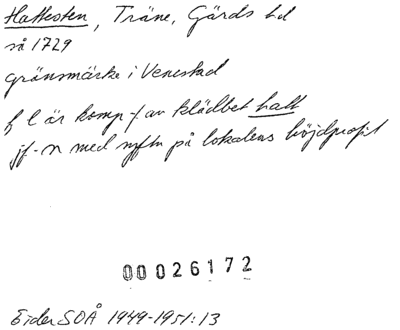 Hattesten, Träne, Gärds hd
så 1729
gränsmärke i Venestad
f l är komp-f. av klädbet hatt
jf-n med syftn på lokalens höjdprofil
00026172
Eider SOÅ 1949-1951:13